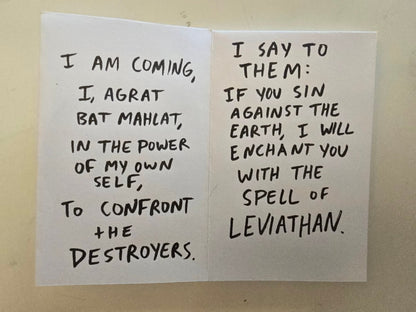 I AM COMING,
I, AGRAT
BAT MAHLAT,
IN THE POWER
OF MY OWN
SELF,
TO CONFRONT
THE
DESTROYERS.
I SAY TO
THEM:
IF YOU SIN
AGAINST THE
EARTH, I WILL
ENCHANT YOU
WITH THE
SPELL OF
LEVIATHAN.